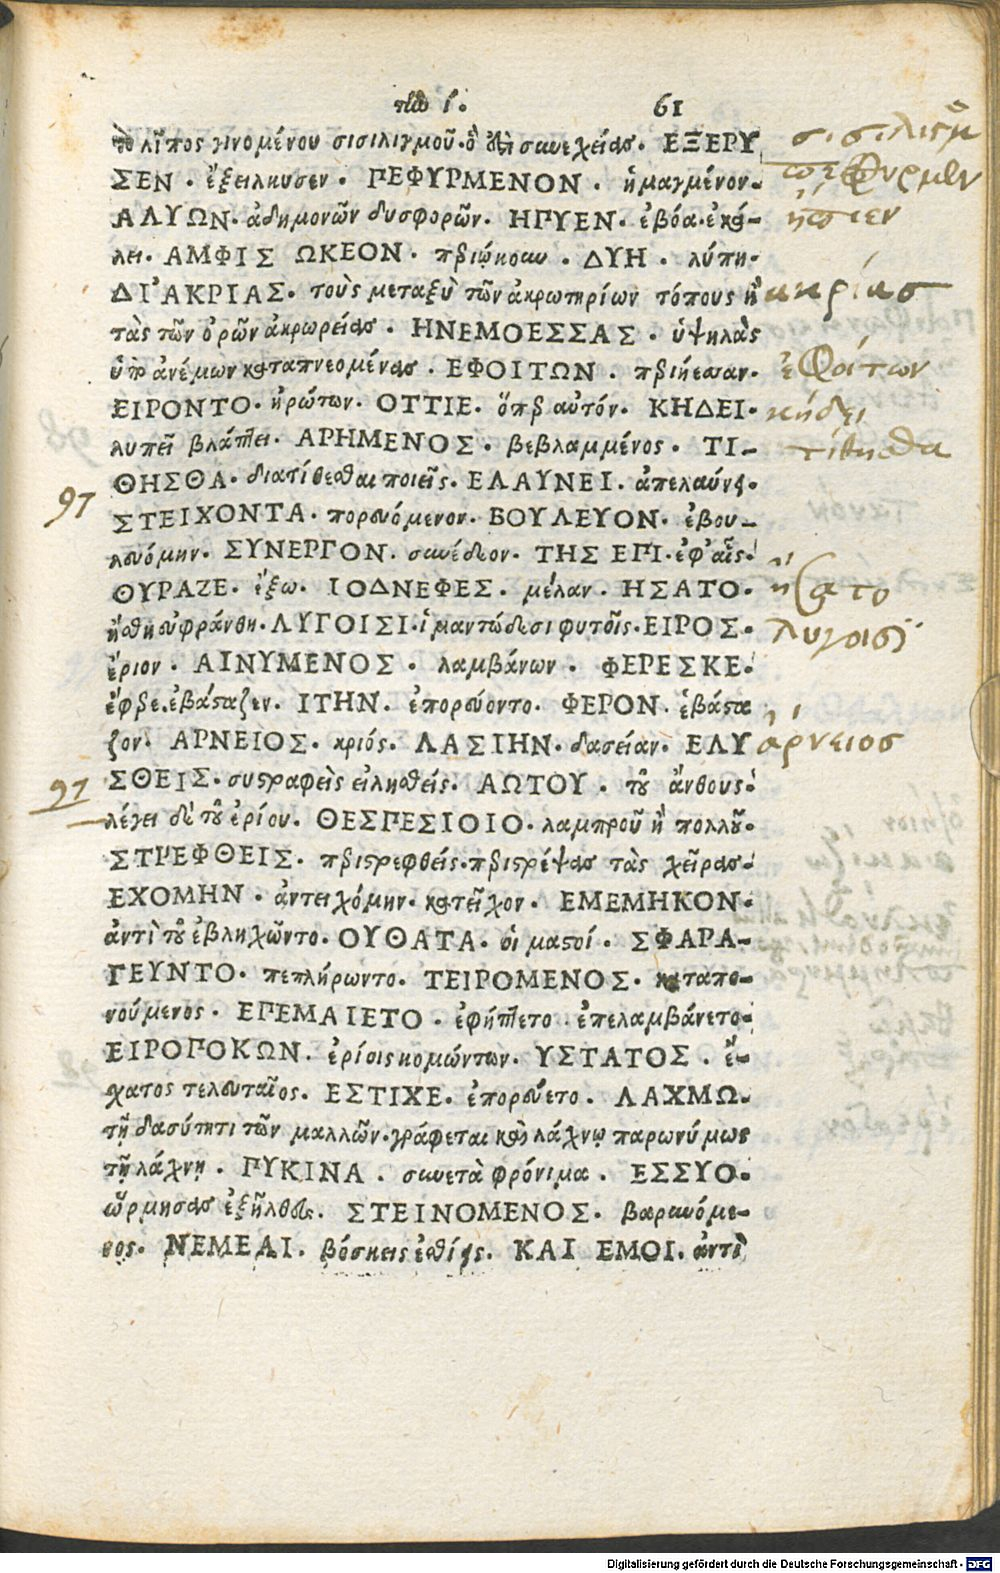 τῶ ί. 61
τὸ λῖπος γινομένου σισιλιγμοῦ. ὅ ἐστι συνεχείας. ΕΞΕΡΥ
ΣΕΝ. ἐξείλκυσεν. ΠΕΦΥΡΜΕΝΟΝ. ᾑμαγμένον.
ΑΛΥΩΝ. ἀδημονῶν δυσφορῶν. ΗΠΥΕΝ. ἐβόα. ἐκά-
λει. ΑΜΦΙΣ ΩΚΕΟΝ. περιῴκουν. ΔΥΗ. λύπη.
ΔΙ'ΑΚΡΙΑΣ. τοὺς μεταξὺ τῶν ἀκρωτηρίων τόπους ἢ
τὰς τῶν ὀρῶν ἀκρωρείας. ΗΝΕΜΟΕΣΣΑΣ. ὑψηλὰς
ὑπὸ ἀνέμων καταπνεομένας. ΕΦΟΙΤΩΝ. περιήεσαν.
ΕΙΡΟΝΤΟ. ἠρώτων. ΟΤΤΙΕ. ὅπερ αὐτόν. ΚΗΔΕΙ.
λυπεῖ βλάπτει. ΑΡΗΜΕΝΟΣ. βεβλαμμένος. ΤΙ-
ΘΗΣΘΑ. διατίθεσθαι ποιεῖς. ΕΛΑΥΝΕΙ. ἀπελαύνει.
ΣΤΕΙΧΟΝΤΑ. πορευόμενον. ΒΟΥΛΕΥΟΝ. ἐβου-
λευόμην. ΣΥΝΕΡΓΟΝ. συνέδεον. ΤΗΣ ΕΠΙ. ἐφ'αἷς.
ΘΥΡΑΖΕ. ἔξω. ΙΟΔΝΕΦΕΣ. μέλαν. ΗΣΑΤΟ.
ἥσθη εὐφράνθη. ΛΥΓΟΙΣΙ. ἱμαντώδεσι φυτοῖς. ΕΙΡΟΣ.
ἔριον. ΑΙΝΥΜΕΝΟΣ. λαμβάνων. ΦΕΡΕΣΚΕ.
ἔφερε. ἐβάσταζεν. ΙΤΗΝ. ἐπορεύοντο. ΦΕΡΟΝ. ἐβάστα
ζον. ΑΡΝΕΙΟΣ. κριός. ΛΑΣΙΗΝ. δασεῖαν. ΕΛΥ
ΣΘΕΙΣ. συστραφεὶς εἰληθείς. ΑΩΤΟΥ. τοῦ ἄνθους.
λέγει δὲ τοῦ ἐρίου. ΘΕΣΠΕΣΙΟΙΟ. λαμπροῦ ἢ πολλοῦ.
ΣΤΡΕΦΘΕΙΣ. περιστρεφθείς. περιστρέψας τὰς χεῖρας.
ΕΧΟΜΗΝ. ἀντειχόμην. κατεῖχον. ΕΜΕΜΗΚΟΝ.
ἀντὶ τοῦ ἐβληχῶντο. ΟΥΘΑΤΑ. οἱ μαστοί. ΣΦΑΡΑ-
ΓΕΥΝΤΟ. πεπλήρωντο. ΤΕΙΡΟΜΕΝΟΣ. καταπο-
νούμενος. ΕΠΕΜΑΙΕΤΟ. ἐφήπτετο. ἐπελαμβάνετο.
ΕΙΡΟΠΟΚΩΝ. ἐρίοις κομώντων. ΥΣΤΑΤΟΣ. ἔ-
σχατος τελευταῖος. ΕΣΤΙΧΕ. ἐπορεύετο. ΛΑΧΜΩ.
τῇ δασύτητι τῶν μαλλῶν. γράφεται καὶ λάχνῳ παρωνύμως
τῇ λάχνῃ. ΠΥΚΙΝΑ. συνετὰ φρόνιμα. ΕΣΣΥΟ.
ὥρμησας ἐξῆλθες. ΣΤΕΙΝΟΜΕΝΟΣ. βαρυνόμε-
νος. ΝΕΜΕΑΙ. βόσκεις ἐσθίεις. ΚΑΙ ΕΜΟΙ. ἀντὶ
πεφυρμέν
ἤπυεν
ακρίας
ἐφοίτων
κήδει
τίθησθα
97
ἥσατο
λυγοισϊ
ἀρνειος
97
Digitalisierung gefördert durch die Deutsche Forschungsgemeinschaft - DFG